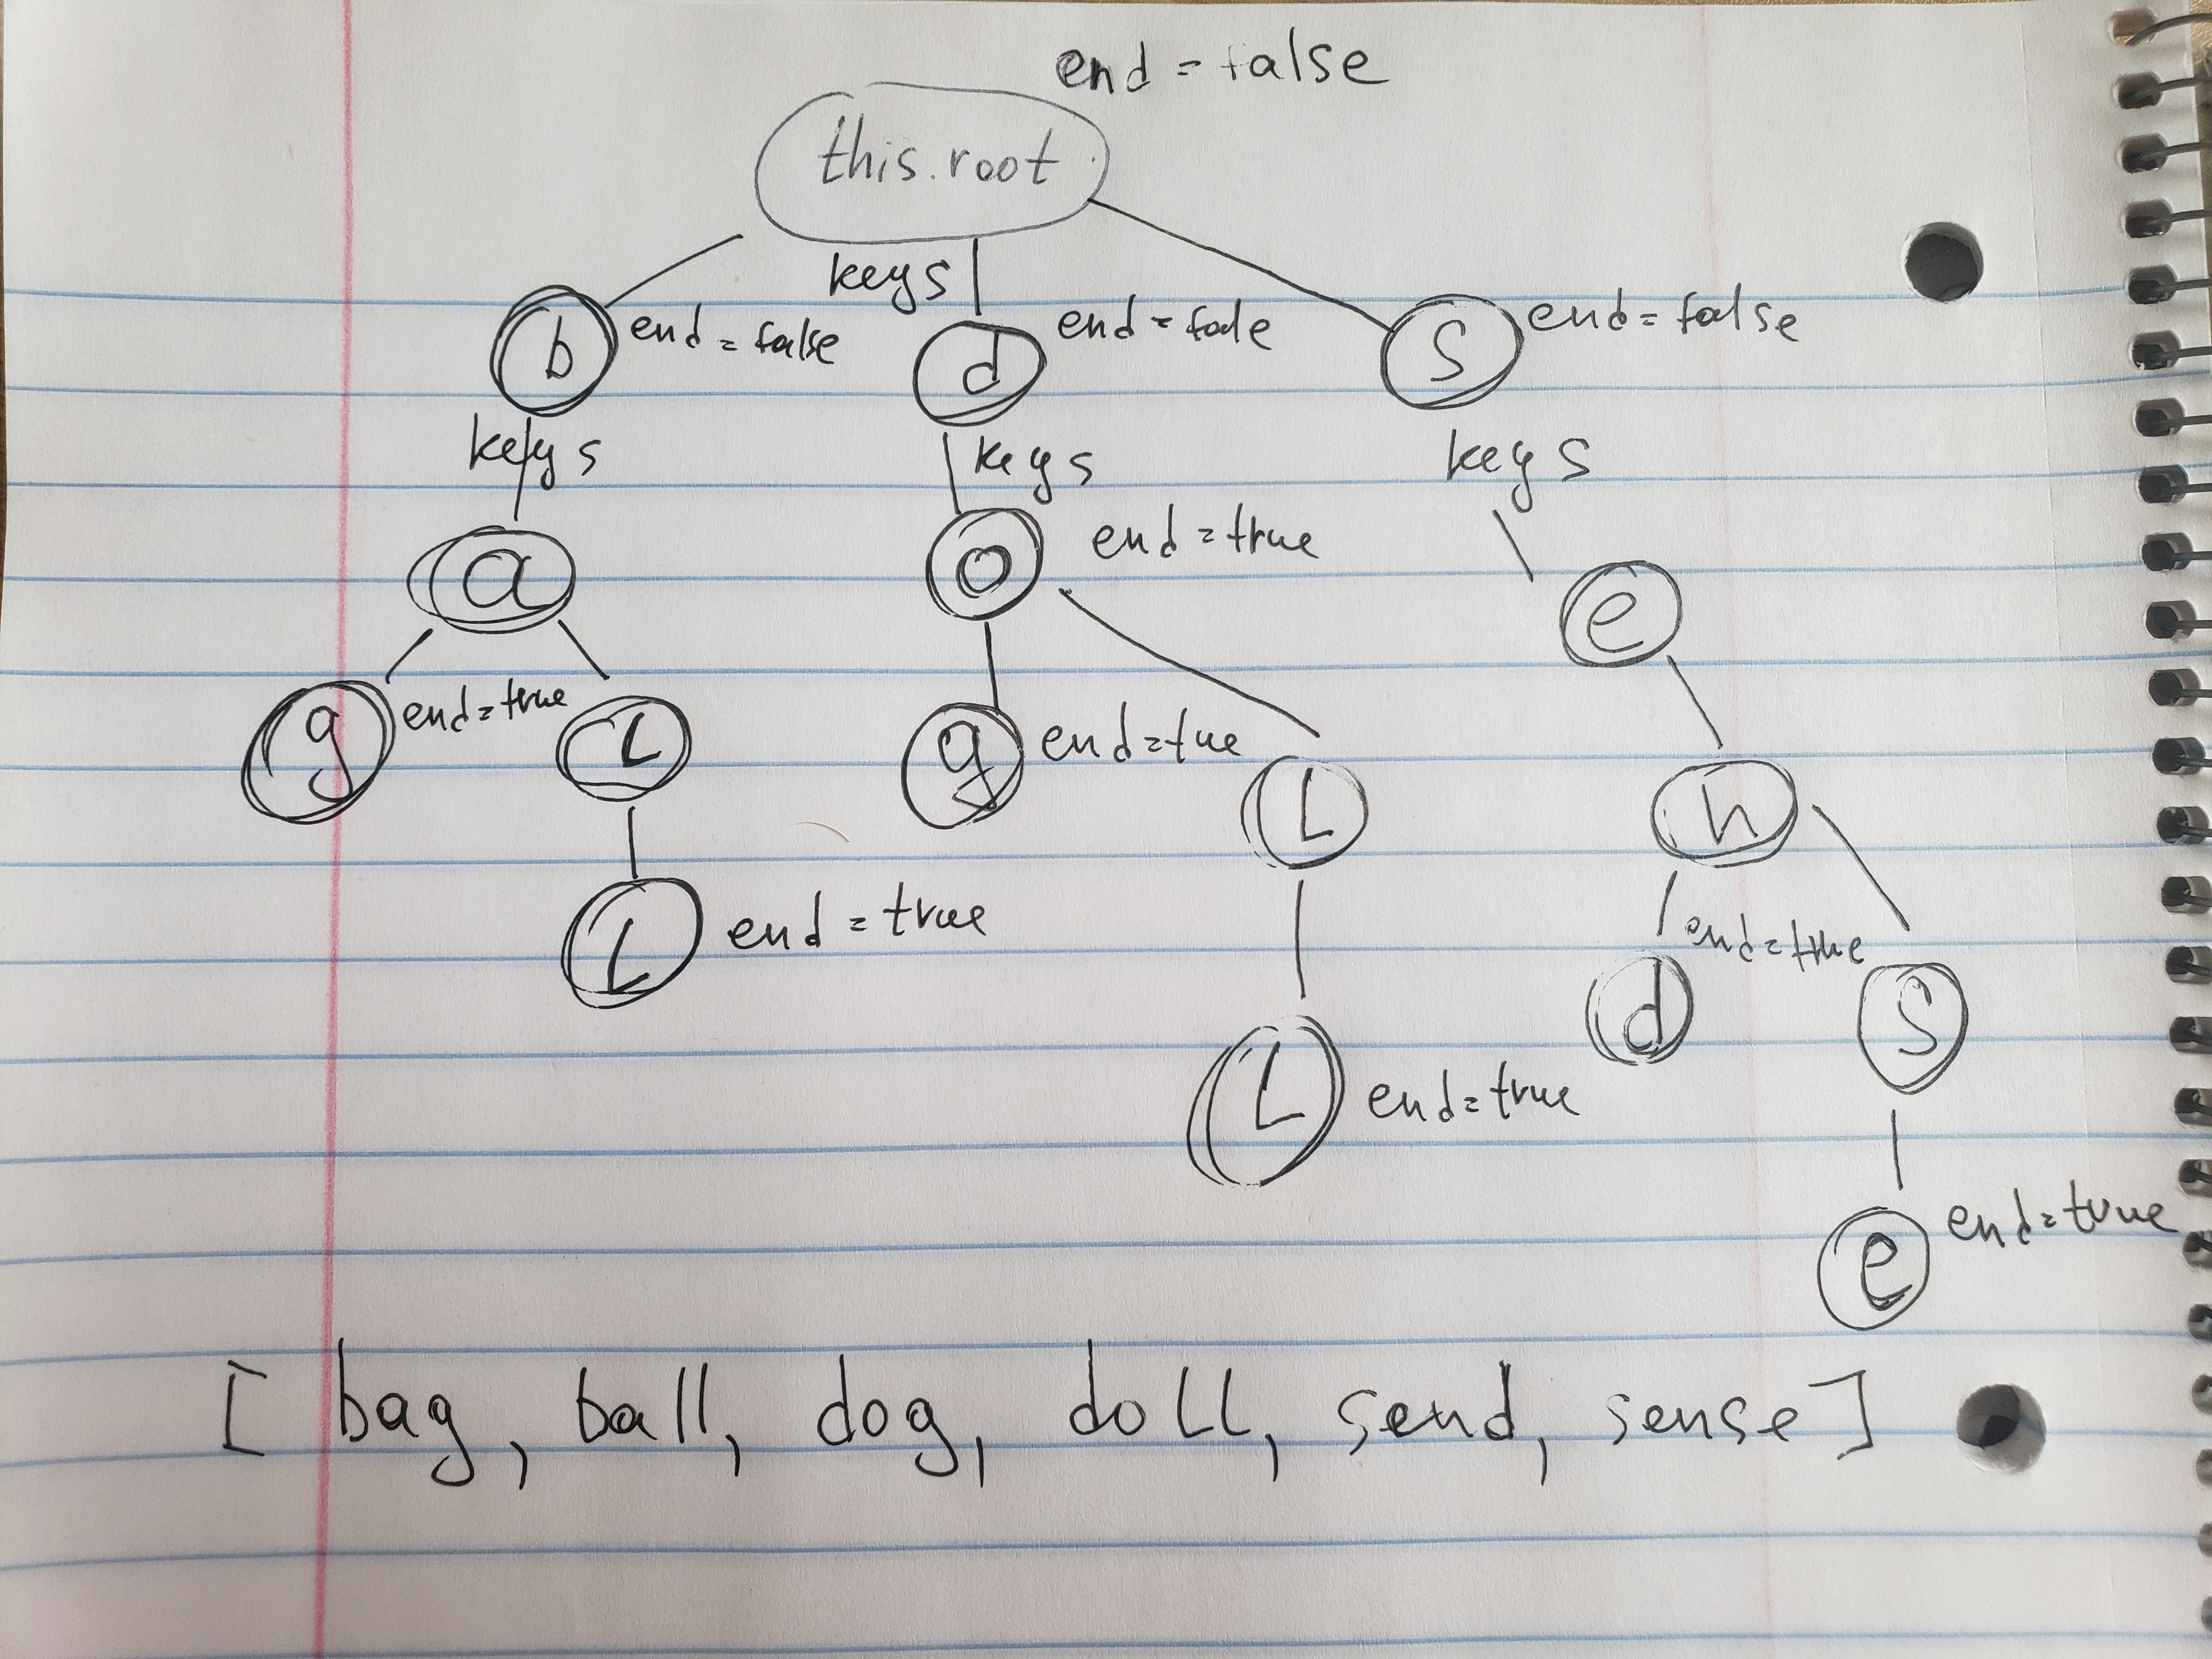 end = false
this.root
keys
b end = false d end = fale S end = false
keys keys keys
a o end = true e
g end = true L g end = tue L n
L end = true d end = true S
L end = true
e end = true
[ bag, ball, dog, doLL, send, sense ]